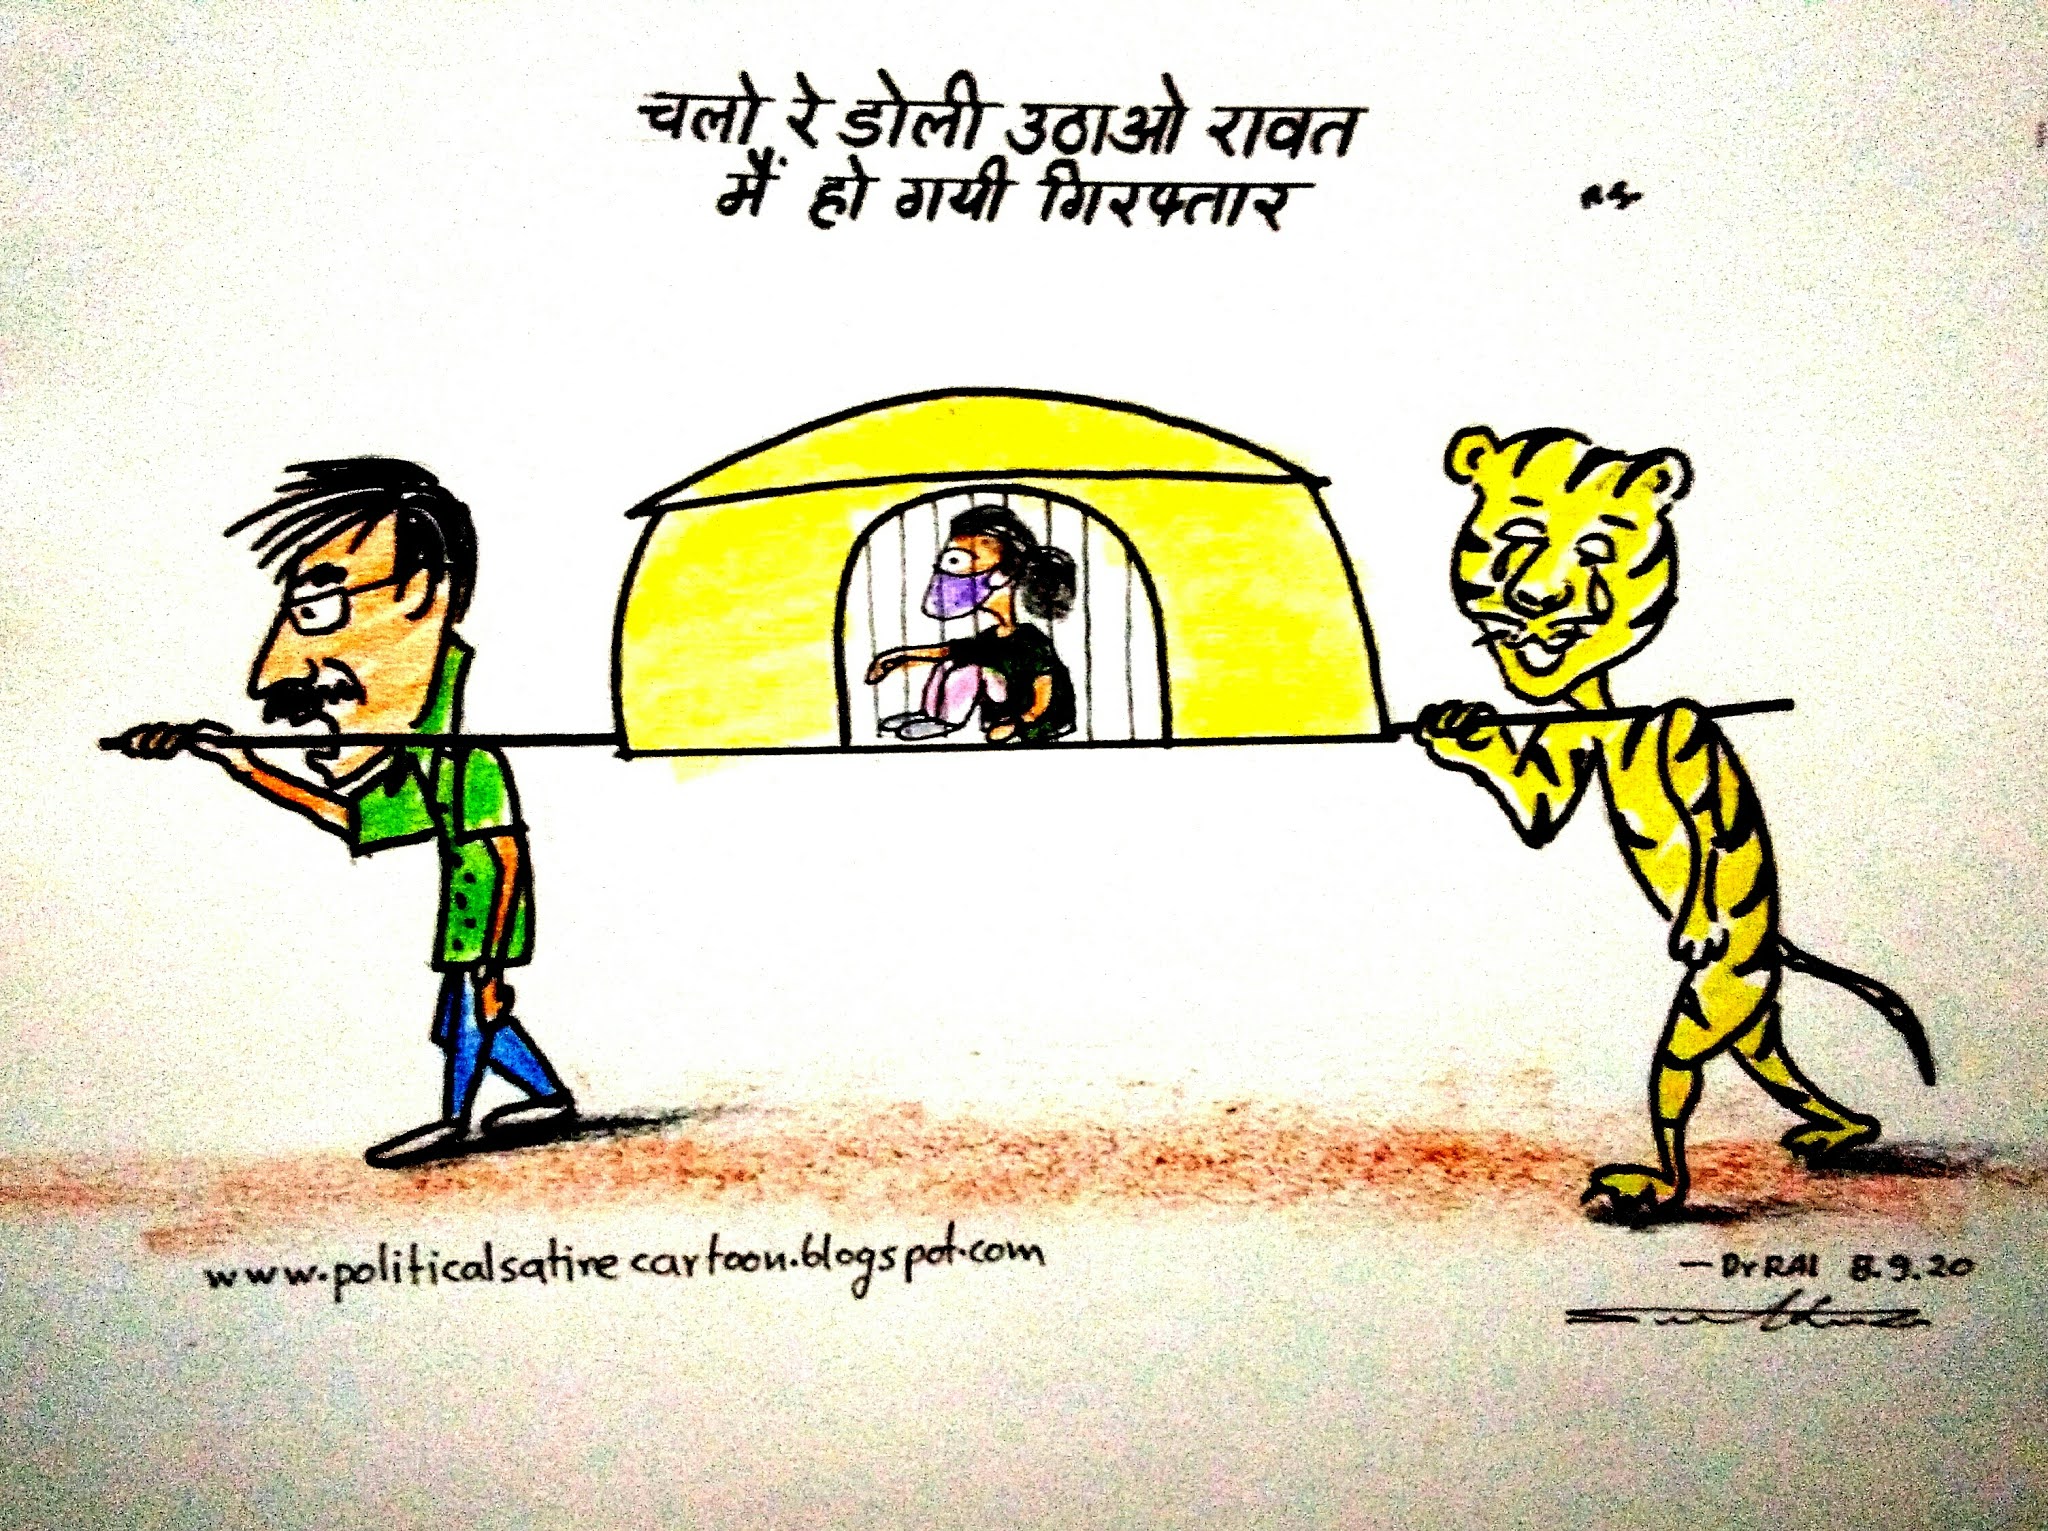 चलो रे डोली उठाओ रावत
मैं हो गयी गिरफ्तार
www.politicalsatirecartoon.blogspot.com
— Dr RAI 8.9.20